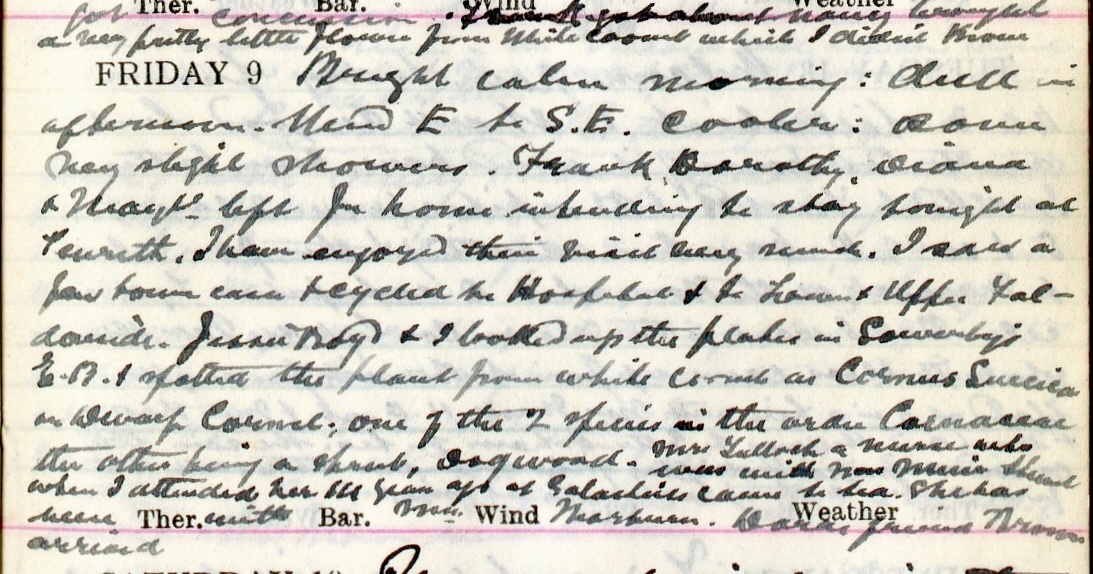 Ther. Bar. Wind Weather
got concussion.
a very pretty little flower from White Coomb which I didnt know
FRIDAY 9 Bright calm morning: dull in
afternoon. Wind E to S.E. Cooler: some
very slight showers. Frank Dorothy Diana
& left for home intending to stay tonight at
Penrith. I have enjoyed their visit very much. I saw a
few town cases & cycled to Hospital & to Lower & Upper Fal-
donside. Jessie Boyd & I looked up the plates in Sowerby's
E.B. & spotted the plant from white coomb as Cornus Suecica
or Dwarf Cornel, one of the 2 species in the order Cornaceae
the other being a shrub, Dogwood. Mrs Tulloch a nurse who
was with Mrs Muir
when I attended her years ago at Galashiels came to tea. She has
been with Mrs.
Ther. Bar. Wind Weather
friend
arrived
SATURDAY 10